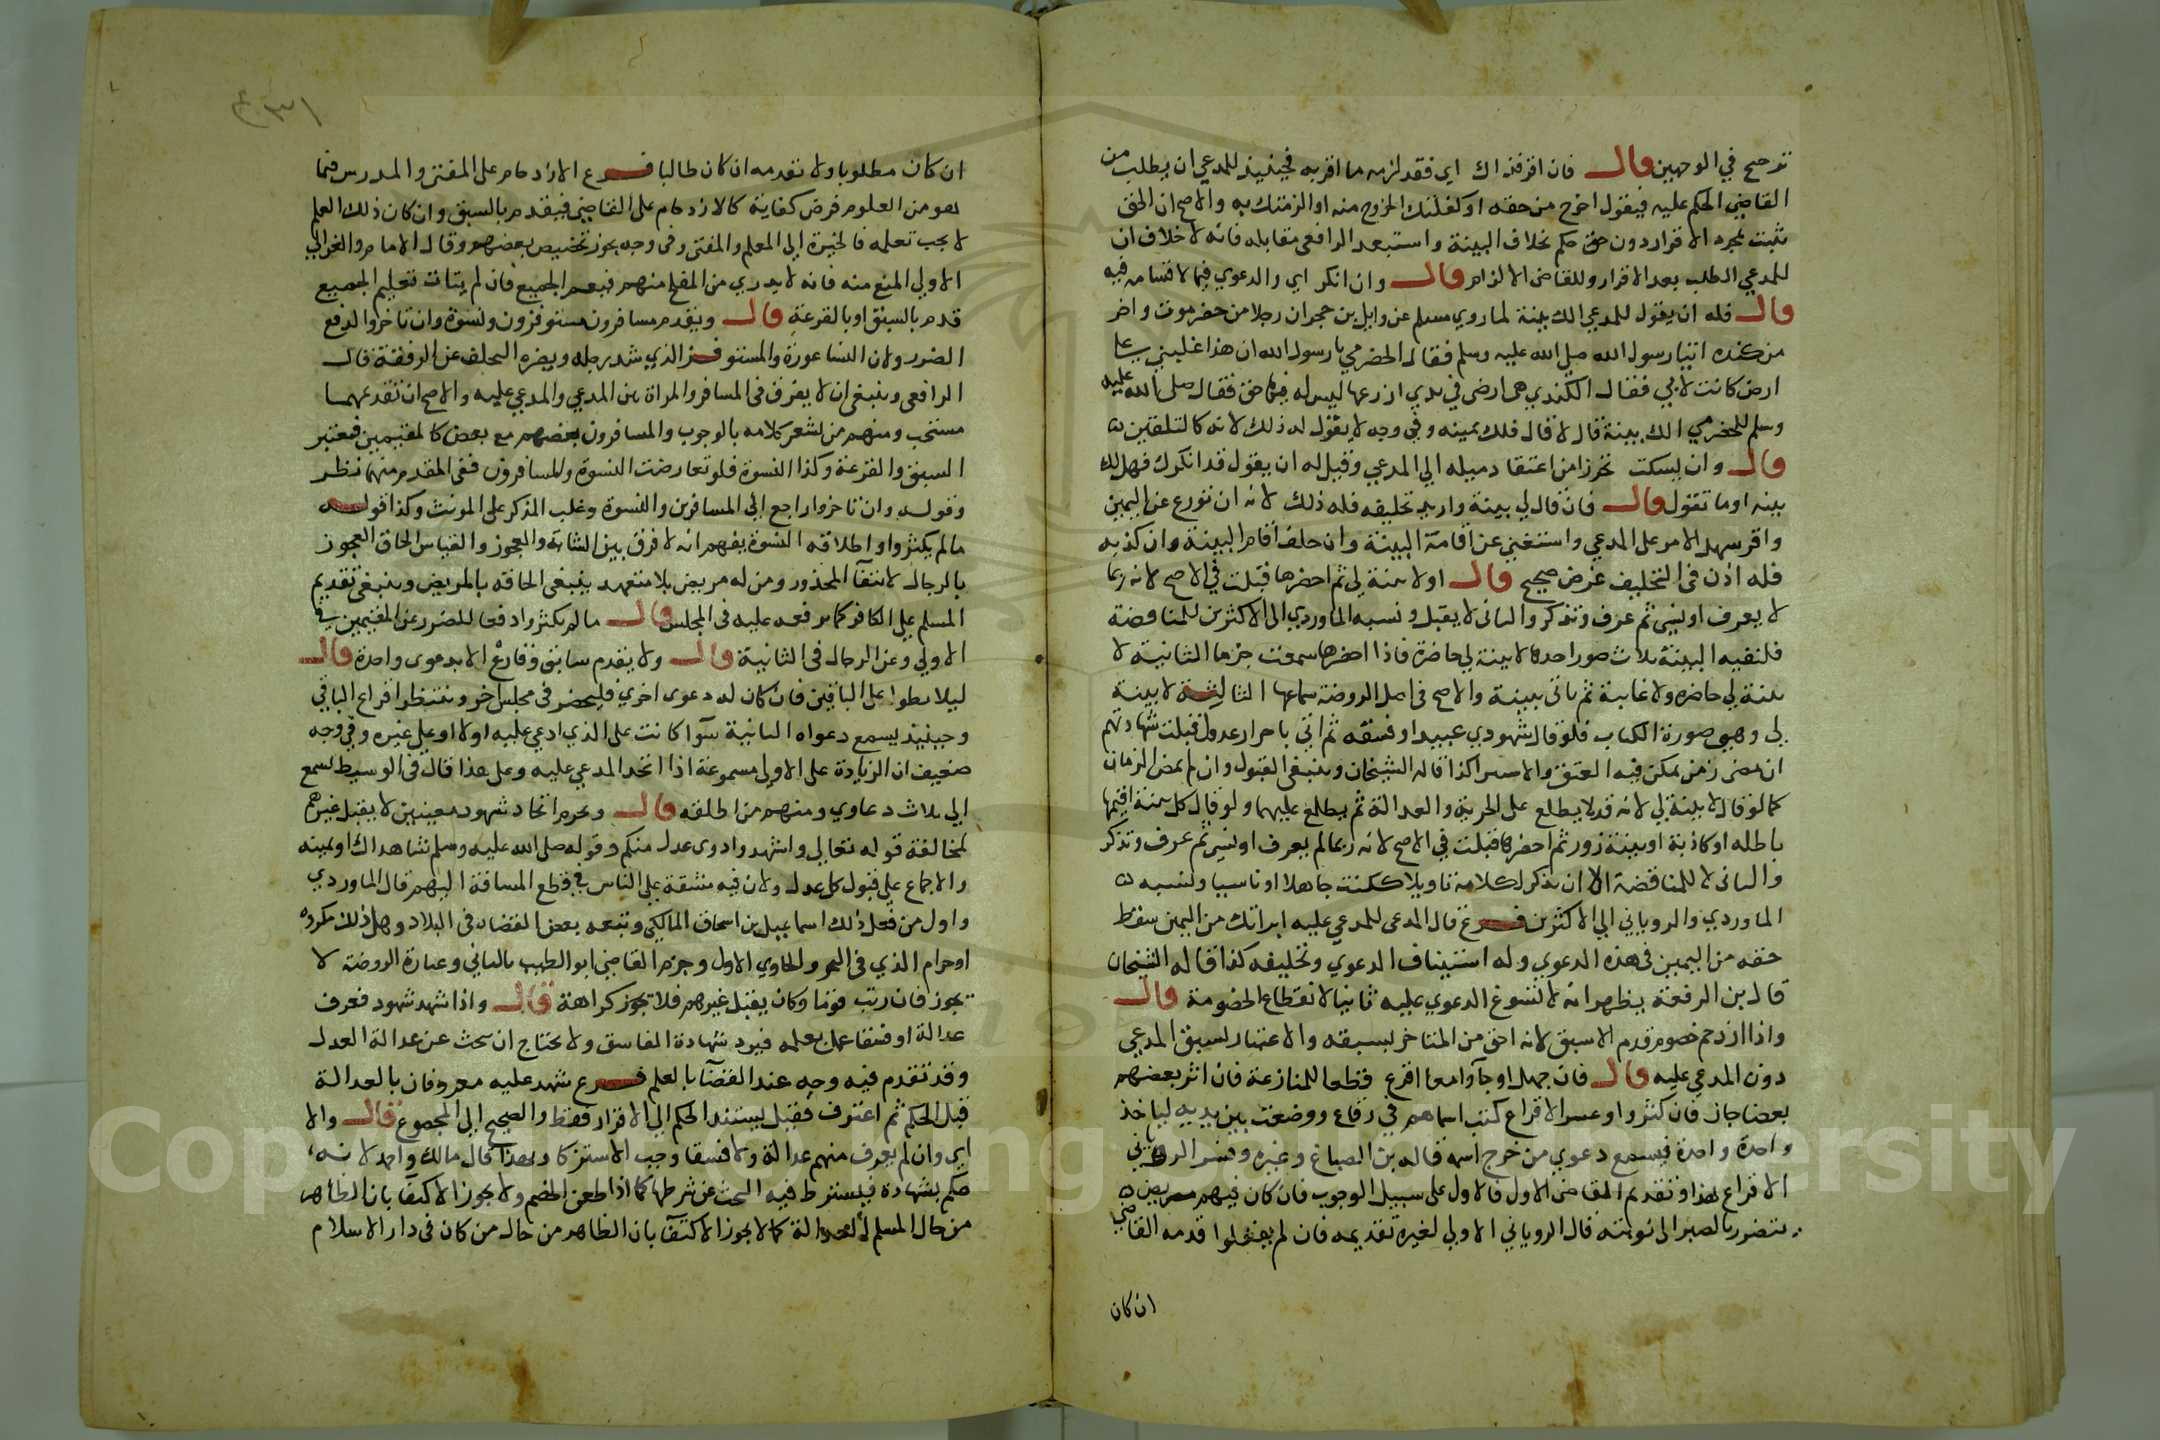 ترجيح في الوجهين قال فان اقر فذاك اي فقد لزمه ما اقر به فحينئذ للمدعي ان يطلب من
القاضي الحكم عليه فيقول اخرج من حقه او كلفتك الخروج منه او الزمتك به والاصح ان الحق
يثبت بمجرد الاقرار دون حق حكم بخلاف البينة واستبعد الرافعي مقابله فانه لا خلاف ان
للمدعي الطلب بعد الاقرار وللقاضي الالزام قال وان انكر اي والدعوي فيما لا قسامه فيه
قال فله ان يقول للمدعي الك بينة لما روي مسلم عن وايل بن حجر ان رجلا من حضرموت واخر
من كنده اتيا رسول الله صلى الله عليه وسلم فقال الحضرمي يا رسول الله ان هذا غلبني على
ارض كانت لابي فقال الكندي هي ارضى في يدي ازرعها ليس له فيها حق فقال صلى الله عليه
وسلم للحضرمي الك بينة قال لا قال فلك يمينه وفي وجه لا يقول له ذلك لانه كالتلقين
قال وان يسكت تحرزا من اعتقاد ميله الي المدعي وقيل له ان يقول قد انكرك فهل لك
بينه اوما تقول قال فان قال لي بينة واريد تحليفه فله ذلك لانه ان تورع عن اليمين
واقر سهل الامر على المدعي واستغني عن اقامة البينة وان حلف اقام البينة وان كذبه
فله اذن في التحليف غرض صحيح قال اولا بينة لي ثم احضرها قبلت في الاصح لانه ربما
لا يعرف او نسي ثم عرف وتذكر والثاني لا يقبل ونسبه الماوردي الي الاكثرين للمناقضة
فلنفيه البينة ثلاث صور احداها لا بينة لي حاضرة فاذا احضرها سمعت جزما الثانية لا
بينة لي حاضره ولا غايبة ثم ياتي ببينة والاصح في اصل الروضة سماعها الثالثة لا بينة
لي وهي صورة الكتاب فلو قال شهودي عبيد او فسقه ثم اتي باحرار عدول قبلت شهادتهم
ان مضى زمن يمكن فيه العتق والاستبرا كذا قاله الشيخان وينبغي القبول وان لم يمض الزمان
كما لو قال لا بينة لي لانه قد لا يطلع على الحرية والعدالة ثم يطلع عليهما ولو قال كل بينة اقيمها
باطله او كاذبة او بينة زور ثم احضرها قبلت في الاصح لانه ربما لم يعرف او نسي ثم عرف وتذكر
والثاني لا للمناقضة الا ان يذكر لكلامه تاويلا ككنت جاهلا او ناسيا ونسبه
الماوردي والروياني الي الاكثرين فرع قال المدعي للمدعي عليه ابراتك من اليمين سقط
حقه من اليمين في هذه الدعوي وله استيناف الدعوي وتحليفه كذا قاله الشيخان
قال بن الرفعة يظهر انه لا تسوغ الدعوي عليه ثانيا لانقطاع الخصومة قال
واذا ازدحم خصوم قدم الاسبق لانه احق من المتاخر لسبقه والاعتبار لسبق المدعي
دون المدعي عليه قال فان جهل او جآوا معا اقرع قطعا للمنازعة فان اثر بعضهم
بعضا جاز فان كثروا وعسر الاقراع كتب اسماهم في رقاع ووضعت بين يديه لياخذ
واحدة واحدة فيسمع دعوي من خرج اسمه قاله بن الصباغ وغيره وفسر الروياني
الاقراع بهذا وتقديم القاضي الاول فالاول على سبيل الوجوب فان كان فيهم مريض
يتضرر بالصبر الى نوبته قال الروياني الاولي لغيره تقديمه فان لم يفعلوا قدمه القاضي
ان كان
ان كان مطلوبا ولا تقدمه ان كان طالبا فرع الازدحام على المفتي والمدرس فيما
هو من العلوم فرض كفاية كالازدحام على القاضي فيقدم بالسبق وان كان ذلك العلم
لا يجب تعلمه فالخيرة الي المعلم والمفتي وفي وجه يجوز تخصيص بعضهم وقال الامام والغزالي
الاولي المنع منه فانه لا يدري من المفلح منهم فيعم الجميع فان لم يتات تعليم الجميع
قدم بالسبق او بالقرعة قال ويقدم مسافرون مستوفزون ونسوة وان تاخروا لدفع
الضرر ولان النسا عورة والمستوفز الذي شد رحله ويضره التخلف عن الرفقة قال
الرافعي وينبغي ان لا يفرق في المسافر والمراة بين المدعي والمدعي عليه والاصح ان تقديمهما
مستحب ومنهم من يشعر كلامه بالوجوب والمسافرون بعضهم مع بعض كالمقيمين فيعتبر
السبق والقرعة وكذا النسوة فلو تعارضت النسوة والمسافرون ففي المقدم منهما نظر
وقوله وان تاخروا راجع الي المسافرين والنسوة وغلب المذكر على المونث وكذا قوله
مالم يكثروا واطلاقه النسوة يفهم انه لا فرق بين الشابة والعجوز والقياس الحاق العجوز
بالرجال لانتفآ المحذور ومن له مريض بلا متعهد ينبغي الحاقه بالمريض وينبغي تقديم
المسلم علي الكافر كما يرفعه عليه في المجلس قال مالم يكثروا دفعا للضرر عن المقيمين في
الاولي وعن الرجال في الثانية قال ولا يقدم سابق وقارع الا بدعوى واحدة قال
ليلا يطول على الباقين فان كان له دعوى اخري فليحضر في مجلس اخر وينتظر افراغ الباقي
وحينئذ يسمع دعواه الثانية سوآ كانت على الذي ادعي عليه اولا او علي غيره وفي وجه
ضعيف ان الزيادة على الاولى مسموعة اذا اتحد المدعي عليه وعلى هذا قال في الوسيط تسمع
الي ثلاث دعاوي ومنهم من اطلقه قال ويحرم اتخاذ شهود معينين لا يقبل غيرهم
لمخالفة قوله تعالي واشهدوا ذوي عدل منكم وقوله صلى الله عليه وسلم شاهداك او يمينه
والاجماع علي قبول كل عدل ولان فيه مشقة على الناس في قطع المسافة اليهم قال الماوردي
واول من فعل ذلك اسماعيل بن اسحاق المالكي وتبعه بعض القضاه في البلاد وهل ذلك مكروه
او حرام الذي في البحر والحاوي الاول وجزم القاضي ابو الطيب بالثاني وعبارة الروضة لا
يجوز فان رتب قوما وكان يقبل غيرهم فلا يجوز كراهة قال واذا شهد شهود فعرف
عدالة او فسقا عمل بعلمه فيرد شهادة الفاسق ولا يحتاج ان يبحث عن عدالة العدل
وقد تقدم فيه وجه عند القضآ بالعلم فرع شهد عليه معروفان بالعدالة
قبل الحكم ثم اعترف فقيل يستند الحكم الي الاقرار فقط والصحيح الي المجموع قال والا
اي وان لم يعرف منهم عدالة ولا فسقا وجب الاستزكا وبهذا قال مالك واحمد لانه
حكم بشهادة فيشترط فيه البحث عن شرطها كما اذا طعن الخصم ولا يجوز الاكتفآ بان الظاهر
من حال المسلم العدالة كما لا يجوز الاكتفآ بان الظاهر من حال من كان في دار الاسلام